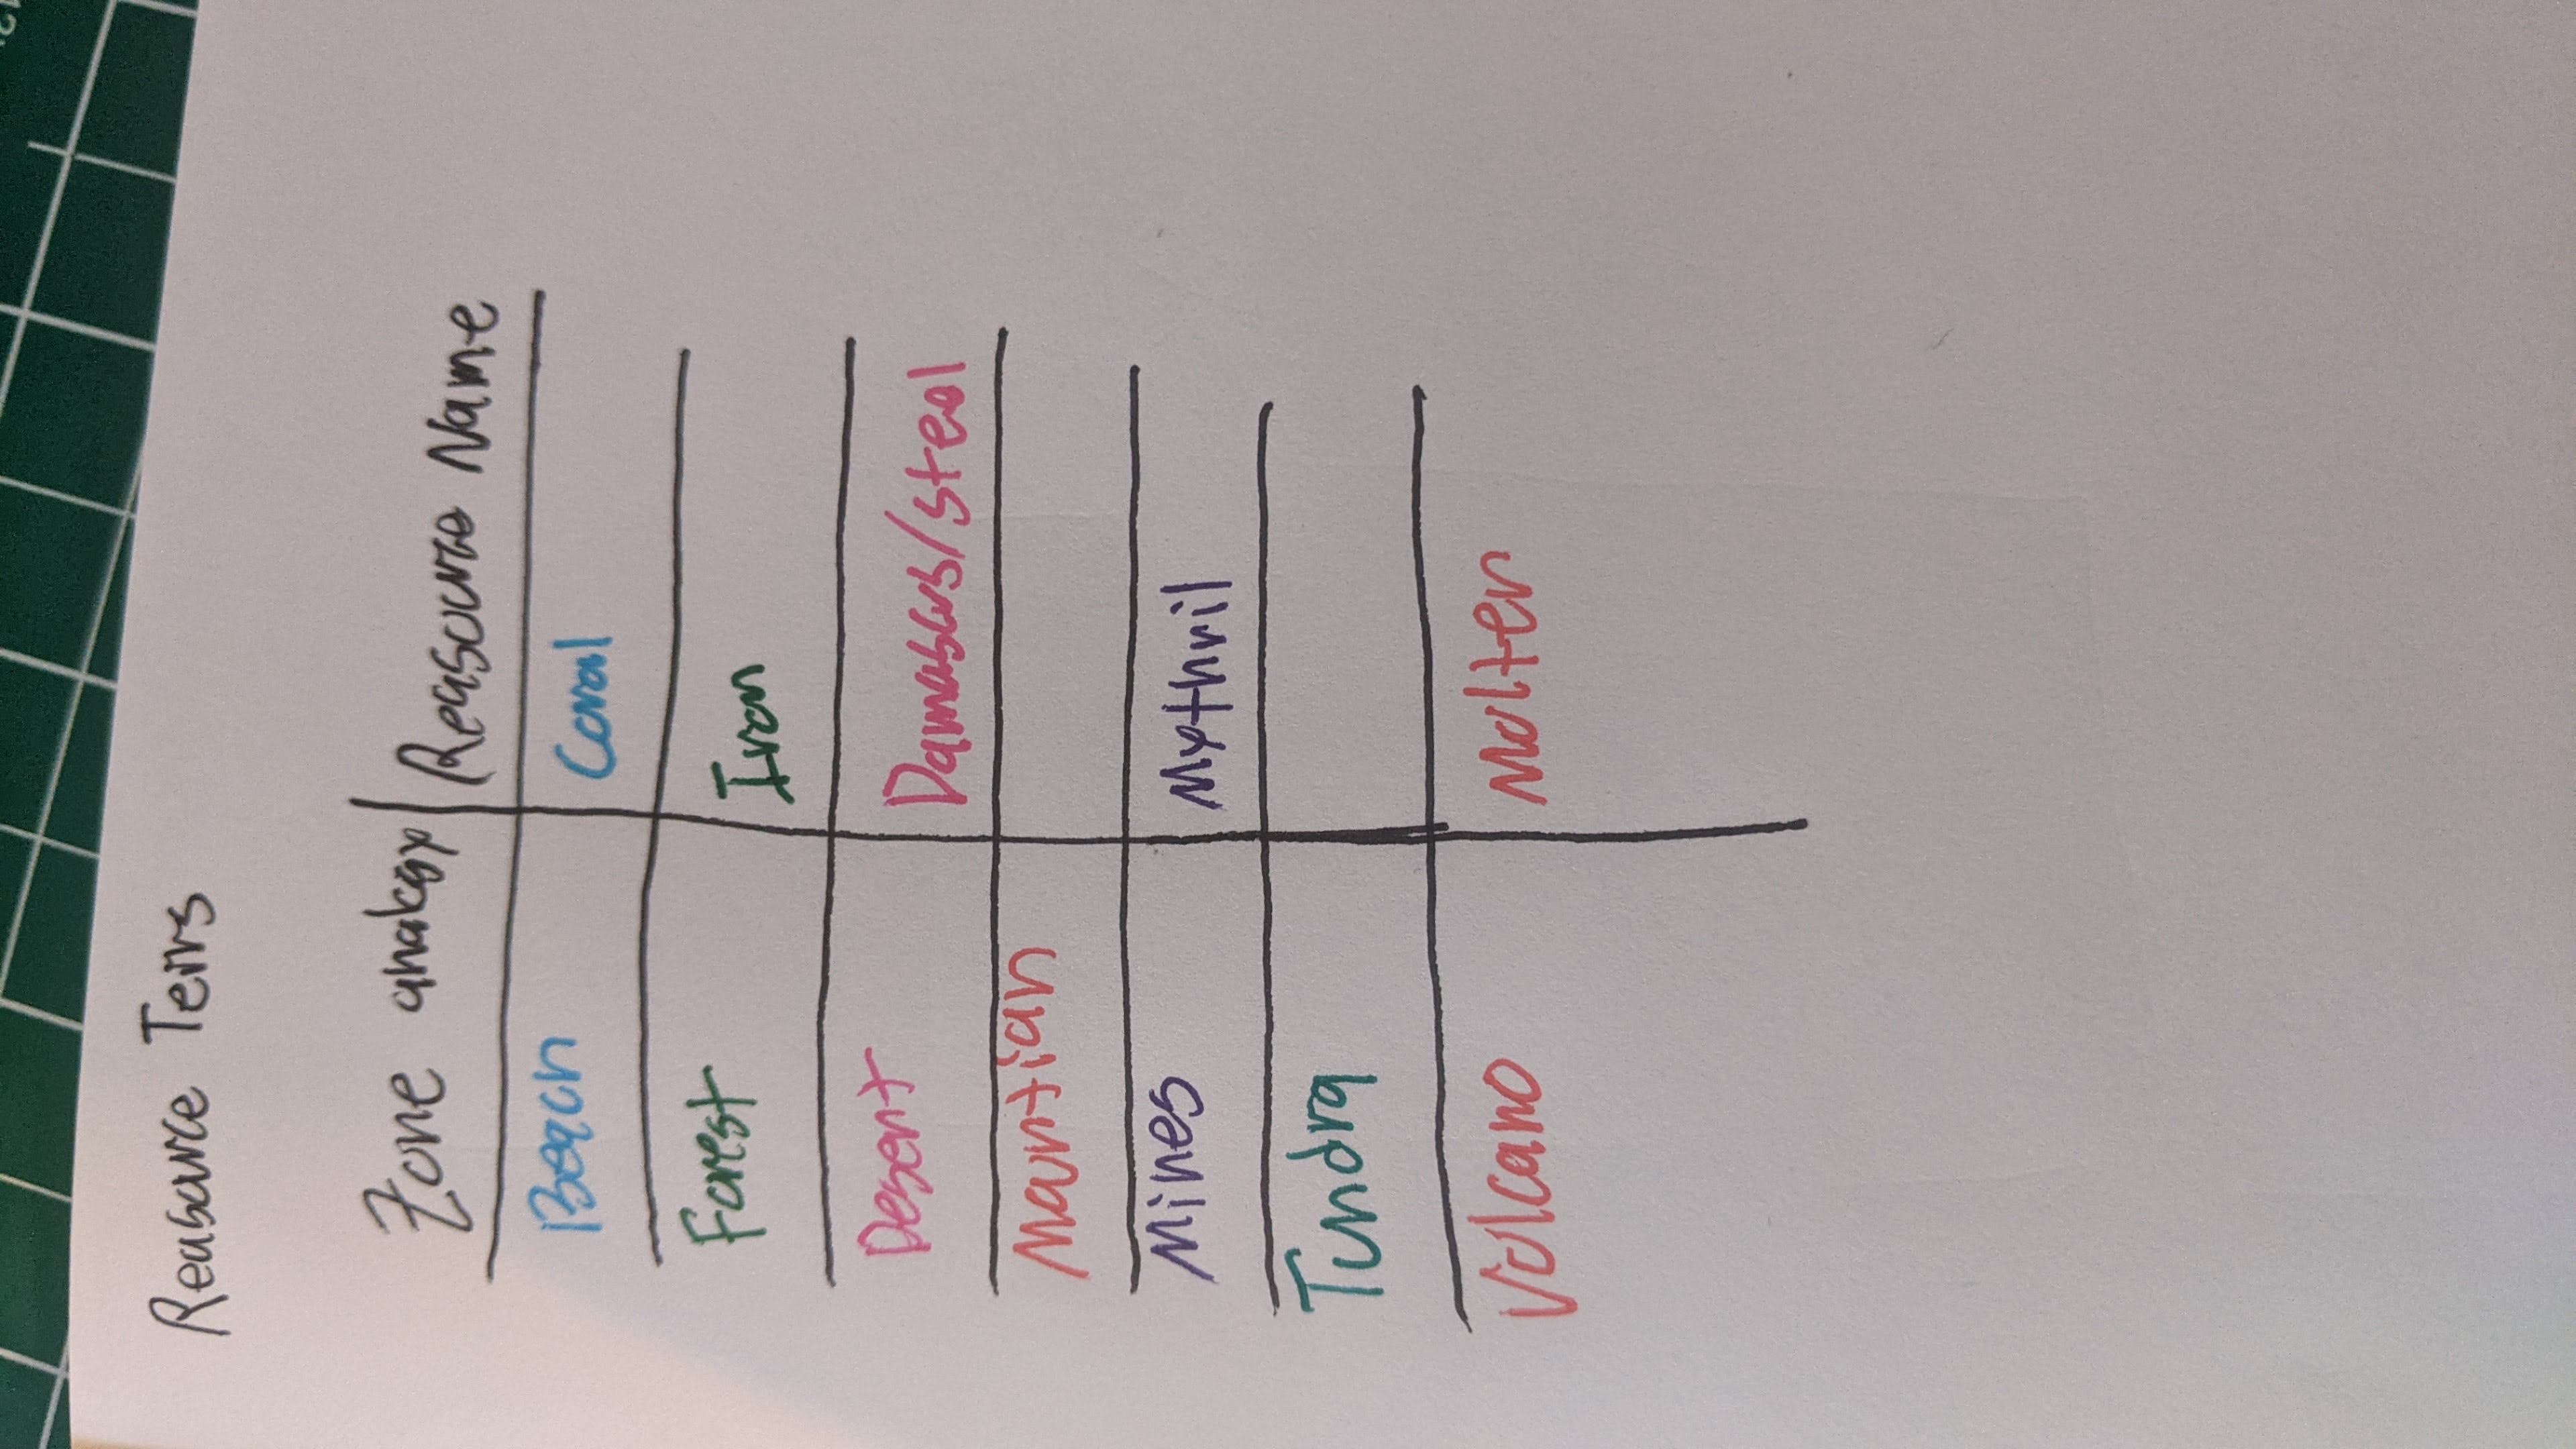 Reasource Teirs
Zone analogy Reasource Name
Beach Coral
Forest Iron
Desert Damascus/steel
Martian
Mines Mythril
Tundra
Volcano Molten